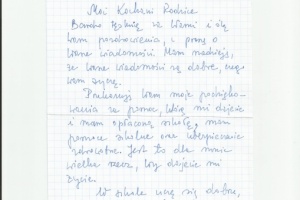 Moi Kochani Rodzice
Bardzo tęsknię za Wami i ślę
Wam pozdrowienia, i proszę o
Wasze wiadomości. Mam nadzieję,
że Wasze wiadomości są dobre, czego
Wam życzę.
Przekazuję Wam moje podzięko-
wania za pomoc, którą mi dajecie
i mam opłaconą szkołę, mam
pomoce szkolne oraz ubezpieczenie
zdrowotne. Jest to dla mnie
wielka rzecz, bo dajecie mi
życie.
W szkole uczę się dobrze,